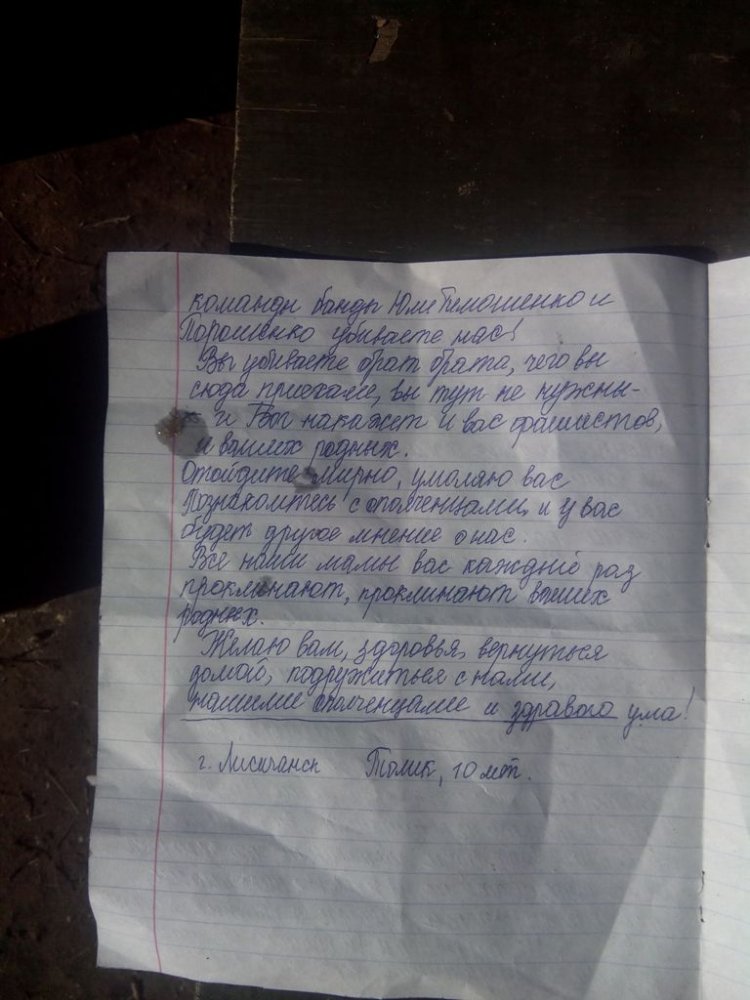 команды банды Юли Тимошенко и
Порошенко убиваете нас!
Вы убиваете брат брата, чего вы
сюда приехали, вы тут не нужны-
и Бог накажет и вас фашистов,
и ваших родных.
Отойдите мирно, умоляю вас
Познакомтесь с ополченцами, и у вас
будет другое мнение о нас.
Все наши мамы вас каждый раз
проклинают, проклинают ваших
родных.
Желаю вам, здоровья, вернуться
домой, подружиться с нами,
нашими ополченцами и здравого ума!
г. Лисичанск Толик, 10 лет.